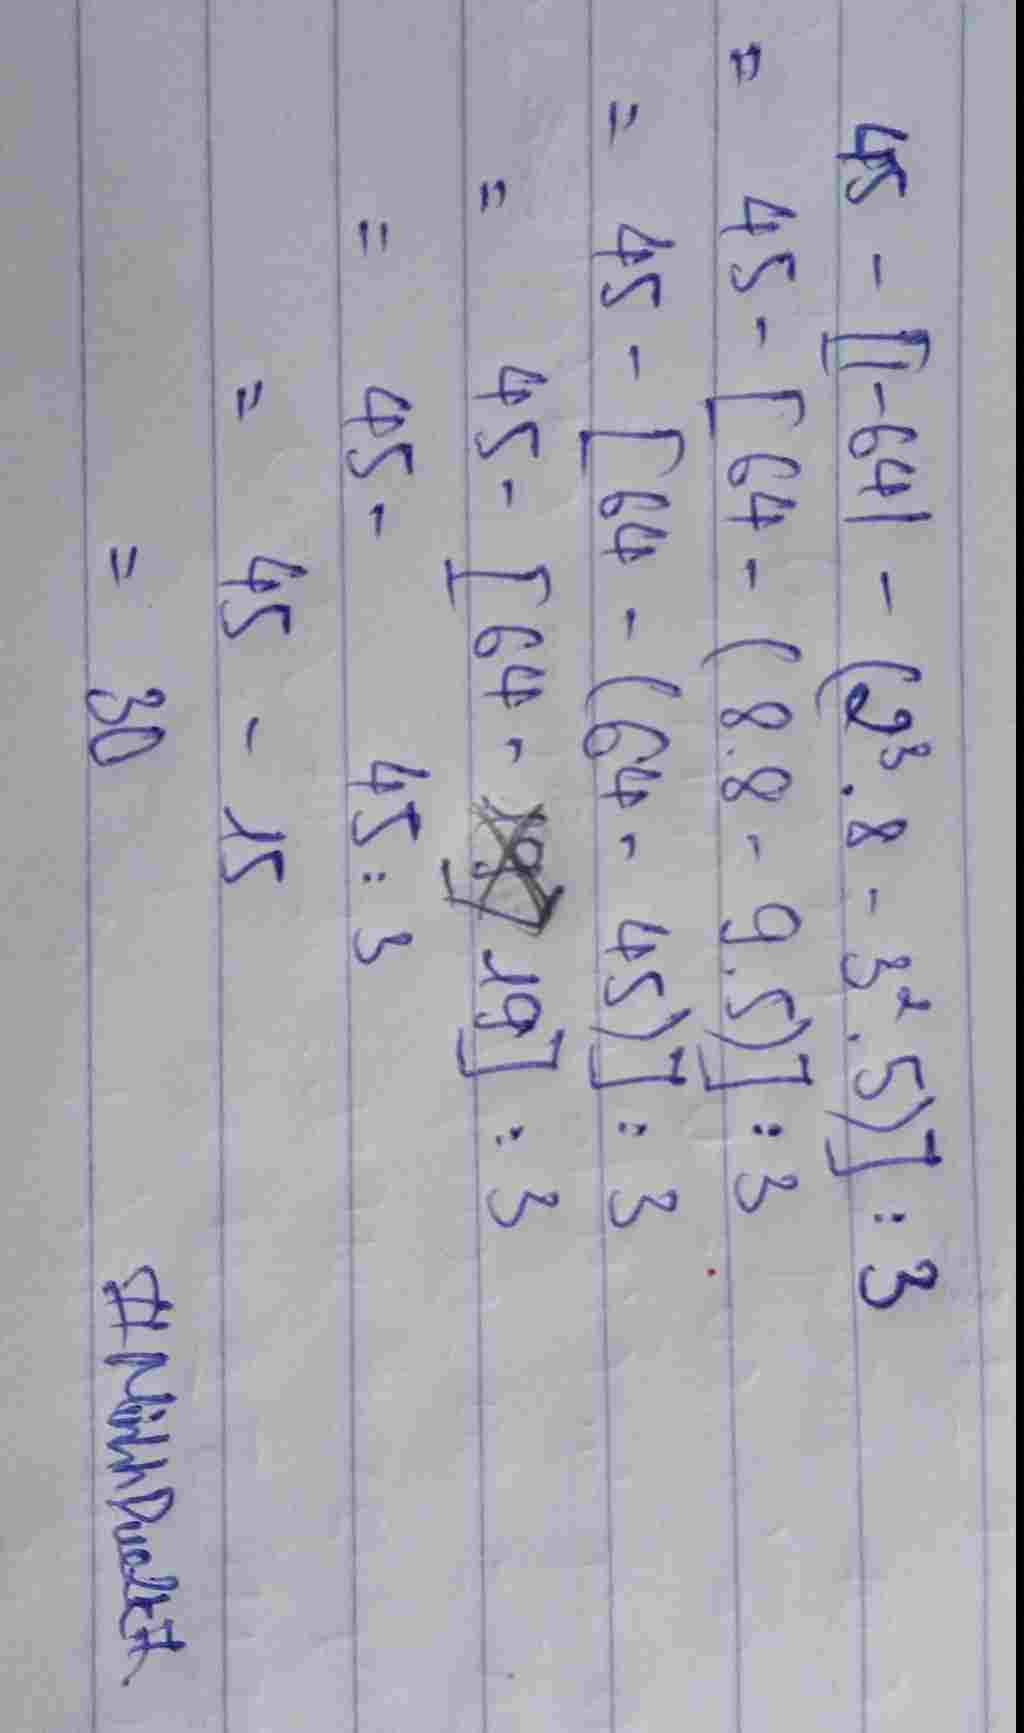 45 - [|-64| - (2³.8 - 3².5)] : 3
= 45 - [64 - (8.8 - 9.5)] : 3
= 45 - [64 - (64 - 45)] : 3
= 45 - [64 - 19] : 3
= 45 - 45 : 3
= 45 - 15
= 30